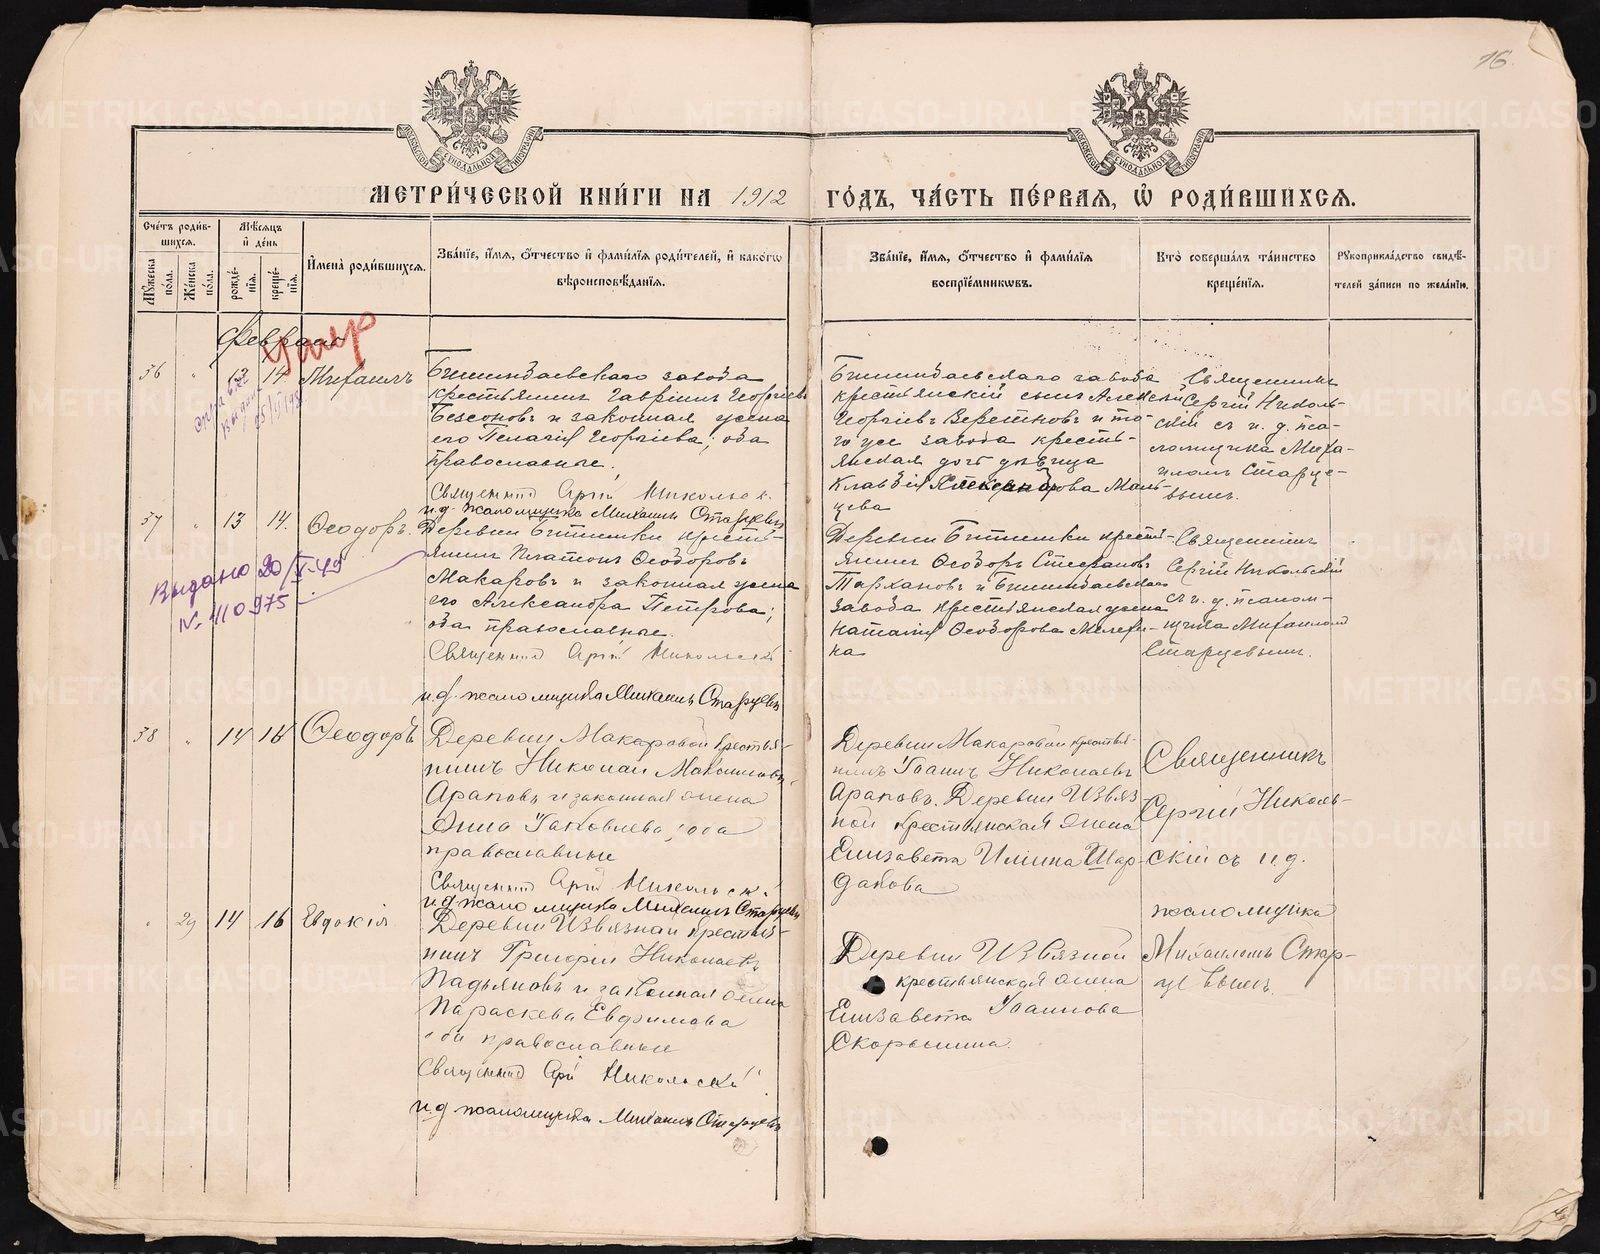 16.
МЕТРИЧЕСКОЙ КНИГИ НА 1912
ГОДЪ, ЧАСТЬ ПЕРВАЯ, Ѡ РОДИВШИХСЯ.
Счетъ родившихся.
Мужеска пола.
Женска пола.
Мѣсяцъ и день
рожденія.
крещенія.
Имена родившихся.
Званіе, имя, отчество и фамилія родителей, и какогѡ
вѣроисповѣданія.
Званіе, имя, отчество и фамилія
воспріемникѡвъ.
Кто совершалъ таинство
крещенія.
Рукоприкладство свидѣтелей записи по желанію.
Февраль
Умер
36 " 13 14 Михаилъ
Билимбаевскаго завода
крестьянинъ Гавріилъ Георгіевъ
Безсоновъ и законная жена
его Пелагія Георгіева; оба
православные.
Священникъ Сергій Никольскій
и.д. псаломщика Михаилъ Старцевъ
Билимбаевскаго завода
крестьянскій сынъ Алексѣй
Георгіевъ Веретновъ и то-
го же завода кресть-
янская дочь дѣвица
Клавдія Александрова Маль-
цева
Священникъ
Сергій Николь-
скій съ и. д. пса-
ломщика Миха-
иломъ Старце-
вымъ.
37 " 13 14. Ѳеодоръ.
Выдано 20/V-49
№ 410975
Деревни Битимки кресть-
янинъ Платонъ Ѳеодоровъ
Макаровъ и законная жена
его Александра Петрова;
оба православные.
Священникъ Сергій Никольскій
и.д. псаломщика Михаилъ Старцевъ
Деревни Битимки кресть-
янинъ Ѳеодоръ Стефановъ
Тарханов и Билимбаевскаго
завода крестьянская жена
Наталія Ѳеодорова Мелехи-
на
Священникъ
Сергій Никольскій
съ и. д. псалом-
щика Михаиломъ
Старцевымъ.
38 " 14 16 Ѳеодоръ
Деревни Макаровой крестья-
нинъ Николай Максимовъ
Араповъ и законная жена
Анна Іаковлева, оба
православные
Священникъ Сергій Никольскій
и.д. псаломщика Михаилъ Старцевъ
Деревни Макаровой крестья-
нинъ Іоаннъ Николаевъ
Араповъ. Деревни Извяз
ной крестьянская жена
Елизавета Илiина Шар-
дакова
Священникъ
Сергій Николь-
скій съ и. д.
псаломщика
Михаиломъ Стар-
цевымъ.
" 29 14 16 Евдокія
Деревни Извязной крестья-
нинъ Григорій Николаевъ
Падьяновъ и законная жена
Параскева Евфимова
оба православные
Священникъ Сергій Никольскій
и.д. псаломщика Михаилъ Старцевъ
Деревни Извязной
крестьянская жена
Елизавета Іоаннова
Скорынина.
METRIKI.GASO-URAL.RU